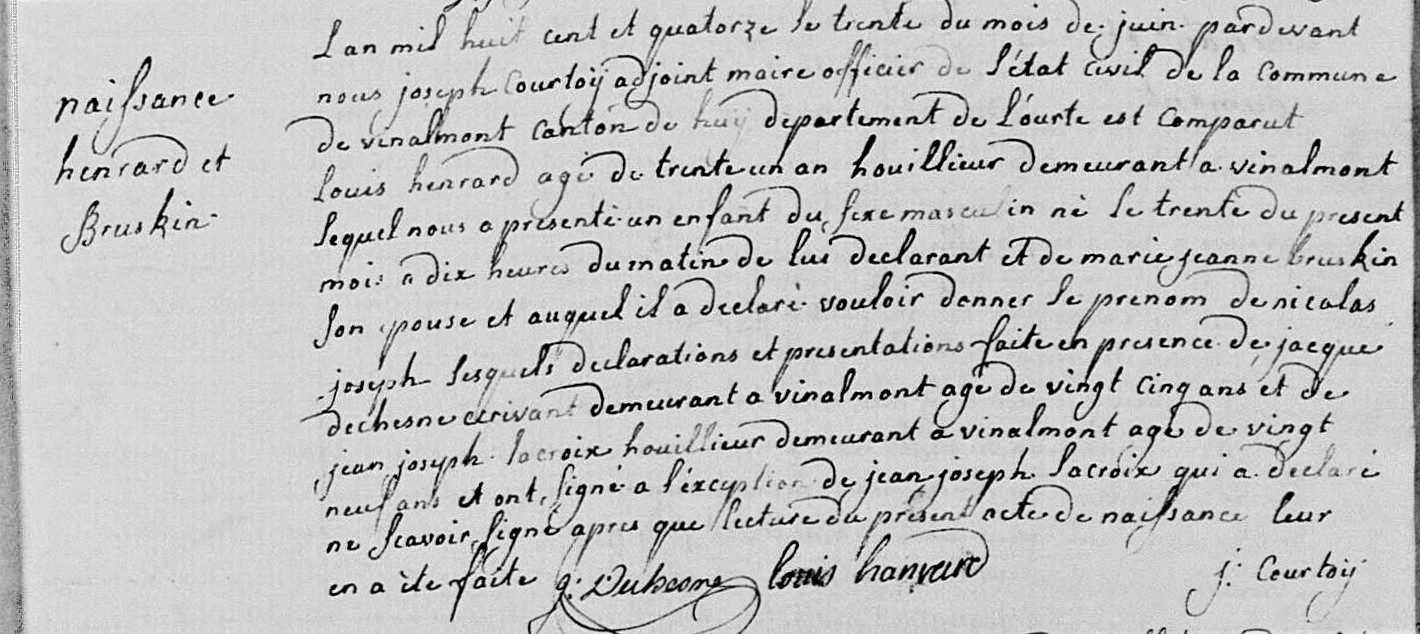 naissance
henrard et
Bruskin
L'an mil huit cent et quatorze le trente du mois de juin pardevant
nous joseph Courtoij adjoint maire officier de l'état civil de la commune
de vinalmont canton de huÿ departement de L'ourte est comparut
louis henrard agé de trente un an houillieur demeurant a vinalmont
lequel nous a présenté un enfant du sexe masculin né le trente du présent
mois a dix heures du matin de lui déclarant et de marie jeanne bruskin
son epouse et auquel il a declaré vouloir donner le prenom de nicolas
joseph lesquels declarations et presentations faite en presence de jacque
dechesne ecrivant demeurant a vinalmont agé de vingt cinq ans et de
jean joseph lacroix houillieur demeurant a vinalmont agé de vingt
neuf ans et ont signé a l'exception de jean joseph lacroix qui a declaré
ne scavoir signé apres que lecture du présent acte de naissance leur
en a été faite louis hanrard j: Courtoij